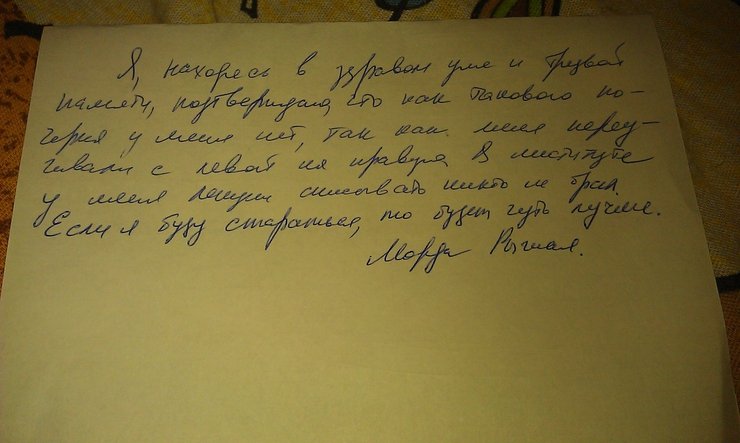 Я, находясь в здравом уме и трезвой
памяти, подтверждаю, что как такового по-
черка у меня нет, так как меня переу-
чивали с левой на правую. В институте
у меня лекции списывать никто не брал.
Если я буду стараться, то будет чуть лучше.
Морда Рыжая.